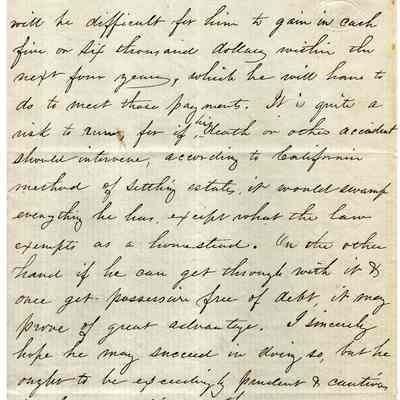 will be difficult for him to gain in cash
five or six thousand dollars within the
next four years, which he will have to
do to meet those payments. It is quite a
risk to run, for if his death or other accident
should intervene, according to California
method of settling estates, it would swamp
everything he has, except what the law
exempts as a homestead. On the other
hand if he can get through with it &
once get possession free of debt, it may
prove of great advantage. I sincerely
hope he may succeed in doing so, but he
ought to be exceedingly prudent & cautious